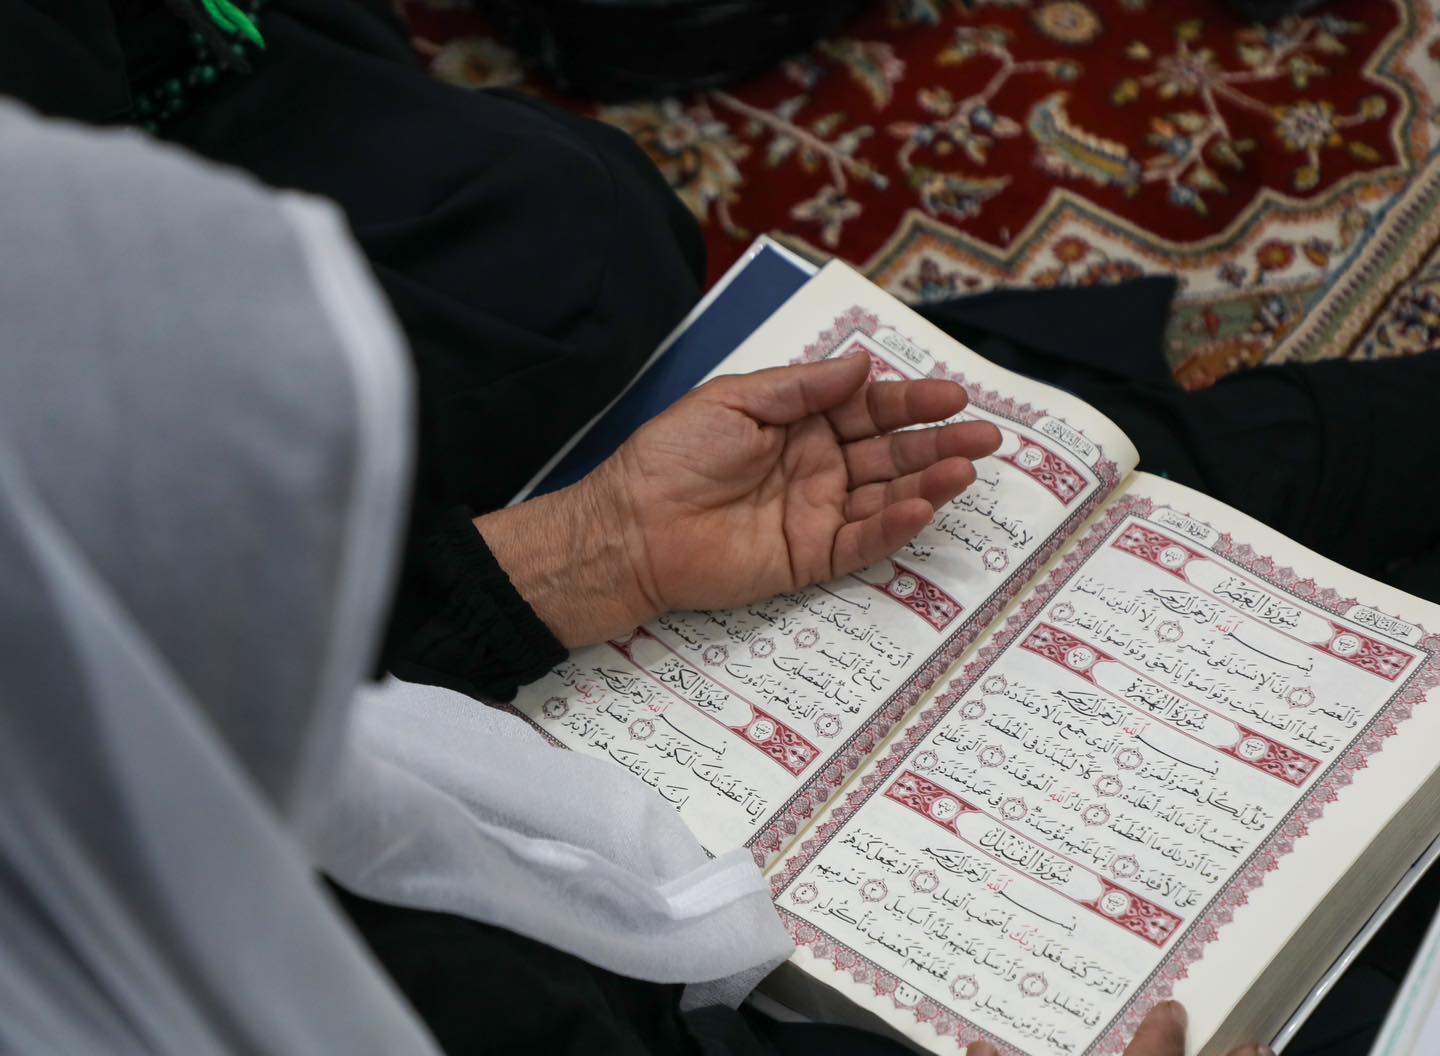 سُورَةُ العَصْرِ
الجُزْءُ الثَّلَاثُونَ
سُورَةُ العَصْرِ
بِسْمِ اللَّهِ الرَّحْمَٰنِ الرَّحِيمِ
وَالْعَصْرِ ١ إِنَّ الْإِنسَانَ لَفِي خُسْرٍ ٢ إِلَّا الَّذِينَ ءَامَنُوا
وَعَمِلُوا الصَّالِحَاتِ وَتَوَاصَوْا بِالْحَقِّ وَتَوَاصَوْا بِالصَّبْرِ ٣
سُورَةُ الهُمَزَةِ
بِسْمِ اللَّهِ الرَّحْمَٰنِ الرَّحِيمِ
وَيْلٌ لِّكُلِّ هُمَزَةٍ لُّمَزَةٍ ١ الَّذِي جَمَعَ مَالًا وَعَدَّدَهُ ٢
يَحْسَبُ أَنَّ مَالَهُ أَخْلَدَهُ ٣ كَلَّا لَيُنبَذَنَّ فِي الْحُطَمَةِ ٤
وَمَا أَدْرَاكَ مَا الْحُطَمَةُ ٥ نَارُ اللَّهِ الْمُوقَدَةُ ٦ الَّتِي تَطَّلِعُ
عَلَى الْأَفْئِدَةِ ٧ إِنَّهَا عَلَيْهِم مُّؤْصَدَةٌ ٨ فِي عَمَدٍ مُّمَدَّدَةٍ ٩
سُورَةُ الفِيلِ
بِسْمِ اللَّهِ الرَّحْمَٰنِ الرَّحِيمِ
أَلَمْ تَرَ كَيْفَ فَعَلَ رَبُّكَ بِأَصْحَابِ الْفِيلِ ١ أَلَمْ يَجْعَلْ كَيْدَهُمْ
فِي تَضْلِيلٍ ٢ وَأَرْسَلَ عَلَيْهِمْ طَيْرًا أَبَابِيلَ ٣ تَرْمِيهِم
بِحِجَارَةٍ مِّن سِجِّيلٍ ٤ فَجَعَلَهُمْ كَعَصْفٍ مَّأْكُولٍ ٥
٦٠١
الجُزْءُ الثَّلَاثُونَ
سُورَةُ قُرَيْشٍ
لِإِيلَافِ قُرَيْشٍ
فَلْيَعْبُدُوا
أَرَءَيْتَ الَّذِي يُكَذِّبُ بِالدِّينِ
يَدُعُّ الْيَتِيمَ ٢ وَلَا يَحُضُّ
فَوَيْلٌ لِّلْمُصَلِّينَ ٤ الَّذِينَ هُمْ
٥ الَّذِينَ هُمْ يُرَاءُونَ ٦ وَيَمْنَعُونَ
سُورَةُ الكَوْثَرِ
بِسْمِ اللَّهِ الرَّحْمَٰنِ الرَّحِيمِ
إِنَّا أَعْطَيْنَاكَ الْكَوْثَرَ ١ فَصَلِّ لِرَبِّكَ
إِنَّ شَانِئَكَ هُوَ الْأَبْتَرُ